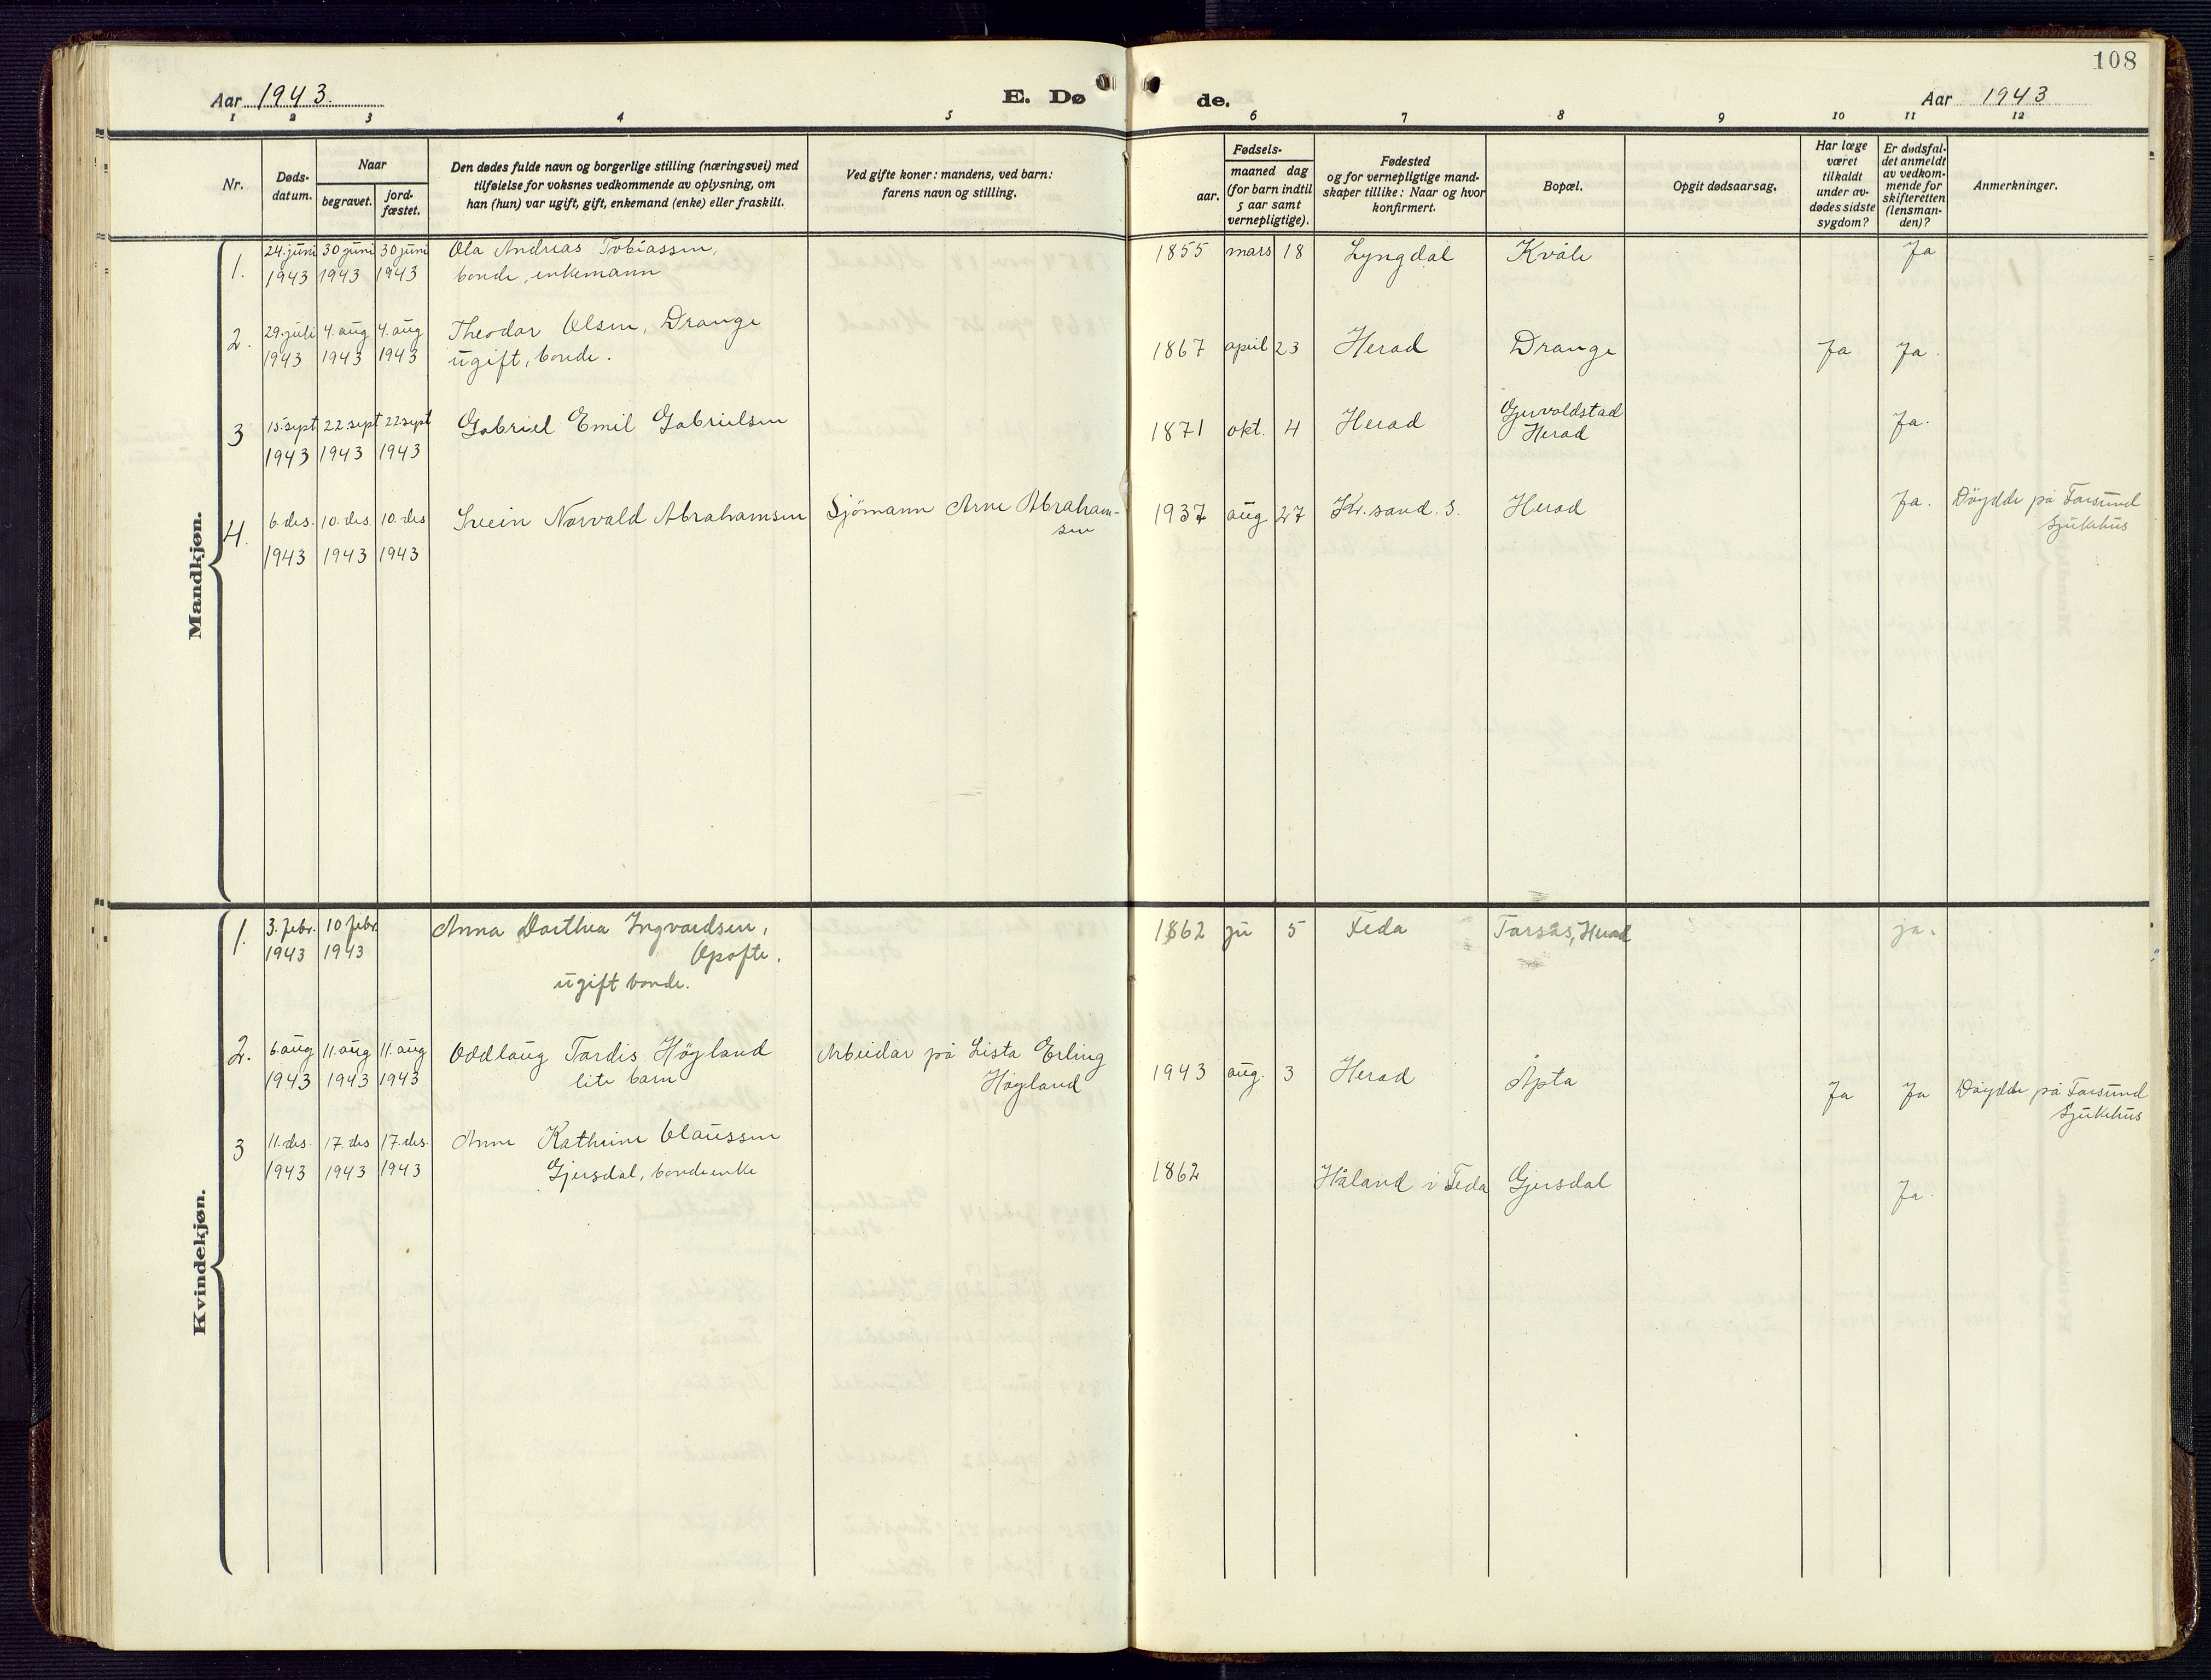 108
Aar 1943.
E. Dø
de.
Aar 1943
1 2 3 4 5 6 7 8 9 10 11 12
Nr.
Døds-
datum.
Naar
begravet.
jord-
fæstet.
Den dødes fulde navn og borgerlige stilling (næringsvei) med
tilføielse for voksnes vedkommende av oplysning, om
han (hun) var ugift, gift, enkemand (enke) eller fraskilt.
Ved gifte koner: mandens, ved barn:
farens navn og stilling.
Fødsels-
aar.
maaned dag
(for barn indtil
5 aar samt
vernepligtige).
Fødested
og for vernepligtige mand-
skaper tillike: Naar og hvor
konfirmert.
Bopæl.
Opgit dødsaarsag.
Har læge
været
tilkaldt
under av-
dødes sidste
sygdom?
Er dødsfal-
det anmeldt
av vedkom-
mende for
skifteretten
(lensman-
den)?
Anmerkninger.
Mandkjøn.
1. 24. juni 30 juni 30 juni Ola Andreas Tobiassen, 1855 mars 18 Lyngdal Kvåle Ja
1943 1943 1943 bonde, enkemann
2. 29. juli 4. aug 4. aug Theodor Olsen, Drange 1867 april 23 Herad Drange Ja Ja.
1943 1943 1943 ugift, bonde.
3 15. sept 22. sept 22 sept Gabriel Emil Gabrielsen 1871 okt. 4 Herad Gjervoldstad Ja.
1943 1943 1943 Herad
4. 6. des. 10. des. 10. des Svein Norvald Abrahamsen Sjömann Arne Abraham- 1937 aug 27 Kr. sand. S. Herad Ja. Döydde på Farsund
1943 1943 1943 sen Sjukehus
Kvindekjøn.
1. 3. febr. 10 febr. Anna Dorthea Ingvardsen, 1862 ju 5 Feda Tarsås, Herad ja.
1943 1943 Opofte.
ugift bonde.
2. 6. aug 11. aug 11. aug Oddlaug Tordis Högland Arbeidar på Lista Erling 1943 aug. 3 Herad Åpta Ja Ja Döydde på Farsund
1943 1943 1943 lite barn Högland Sjukehus
3 11. des. 17. des 17. des. Anne Kathrine Claussen 1862 Håland i Feda Gjersdal Ja.
1943 1943 1943 Gjersdal, bondeenke